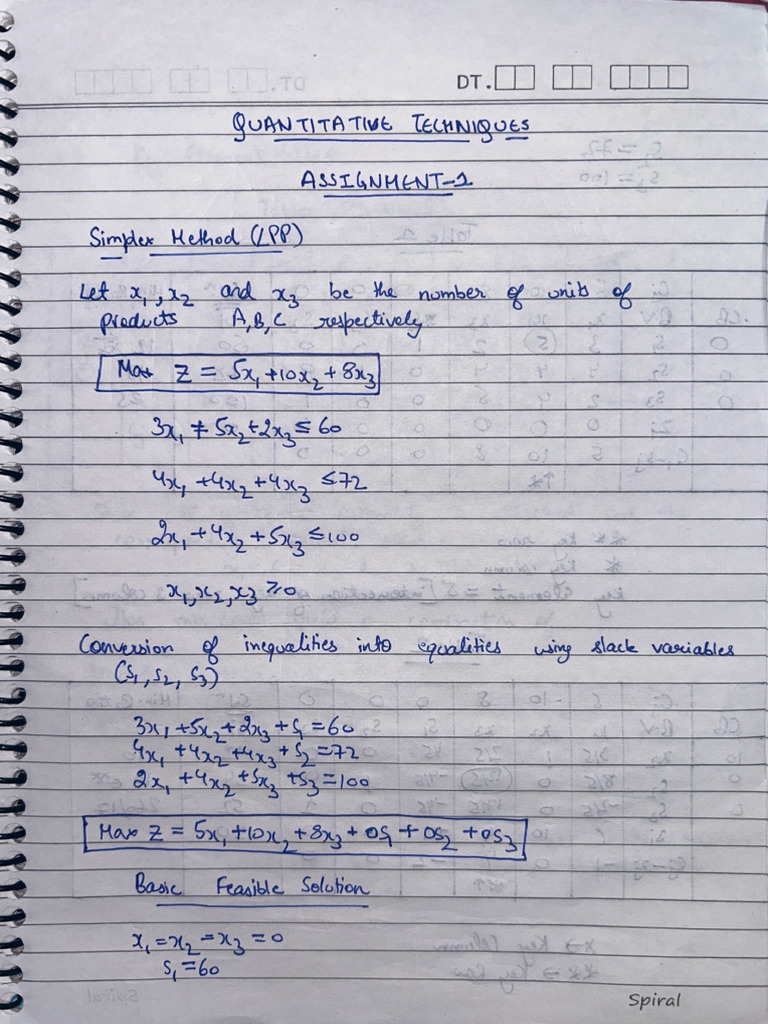 DT.
QUANTITATIVE TECHNIQUES
ASSIGNMENT-1
Simplex Method (LPP)
Let x₁, x₂ and x₃ be the number of units of
products A, B, C respectively
Max Z = 5x₁ + 10x₂ + 8x₃
3x₁ + 5x₂ + 2x₃ ≤ 60
4x₁ + 4x₂ + 4x₃ ≤ 72
2x₁ + 4x₂ + 5x₃ ≤ 100
x₁, x₂, x₃ ≥ 0
Conversion of inequalities into equalities using slack variables
(s₁, s₂, s₃)
3x₁ + 5x₂ + 2x₃ + s₁ = 60
4x₁ + 4x₂ + 4x₃ + s₂ = 72
2x₁ + 4x₂ + 5x₃ + s₃ = 100
Max Z = 5x₁ + 10x₂ + 8x₃ + 0s₁ + 0s₂ + 0s₃
Basic Feasible Solution
x₁ = x₂ = x₃ = 0
s₁ = 60
Spiral